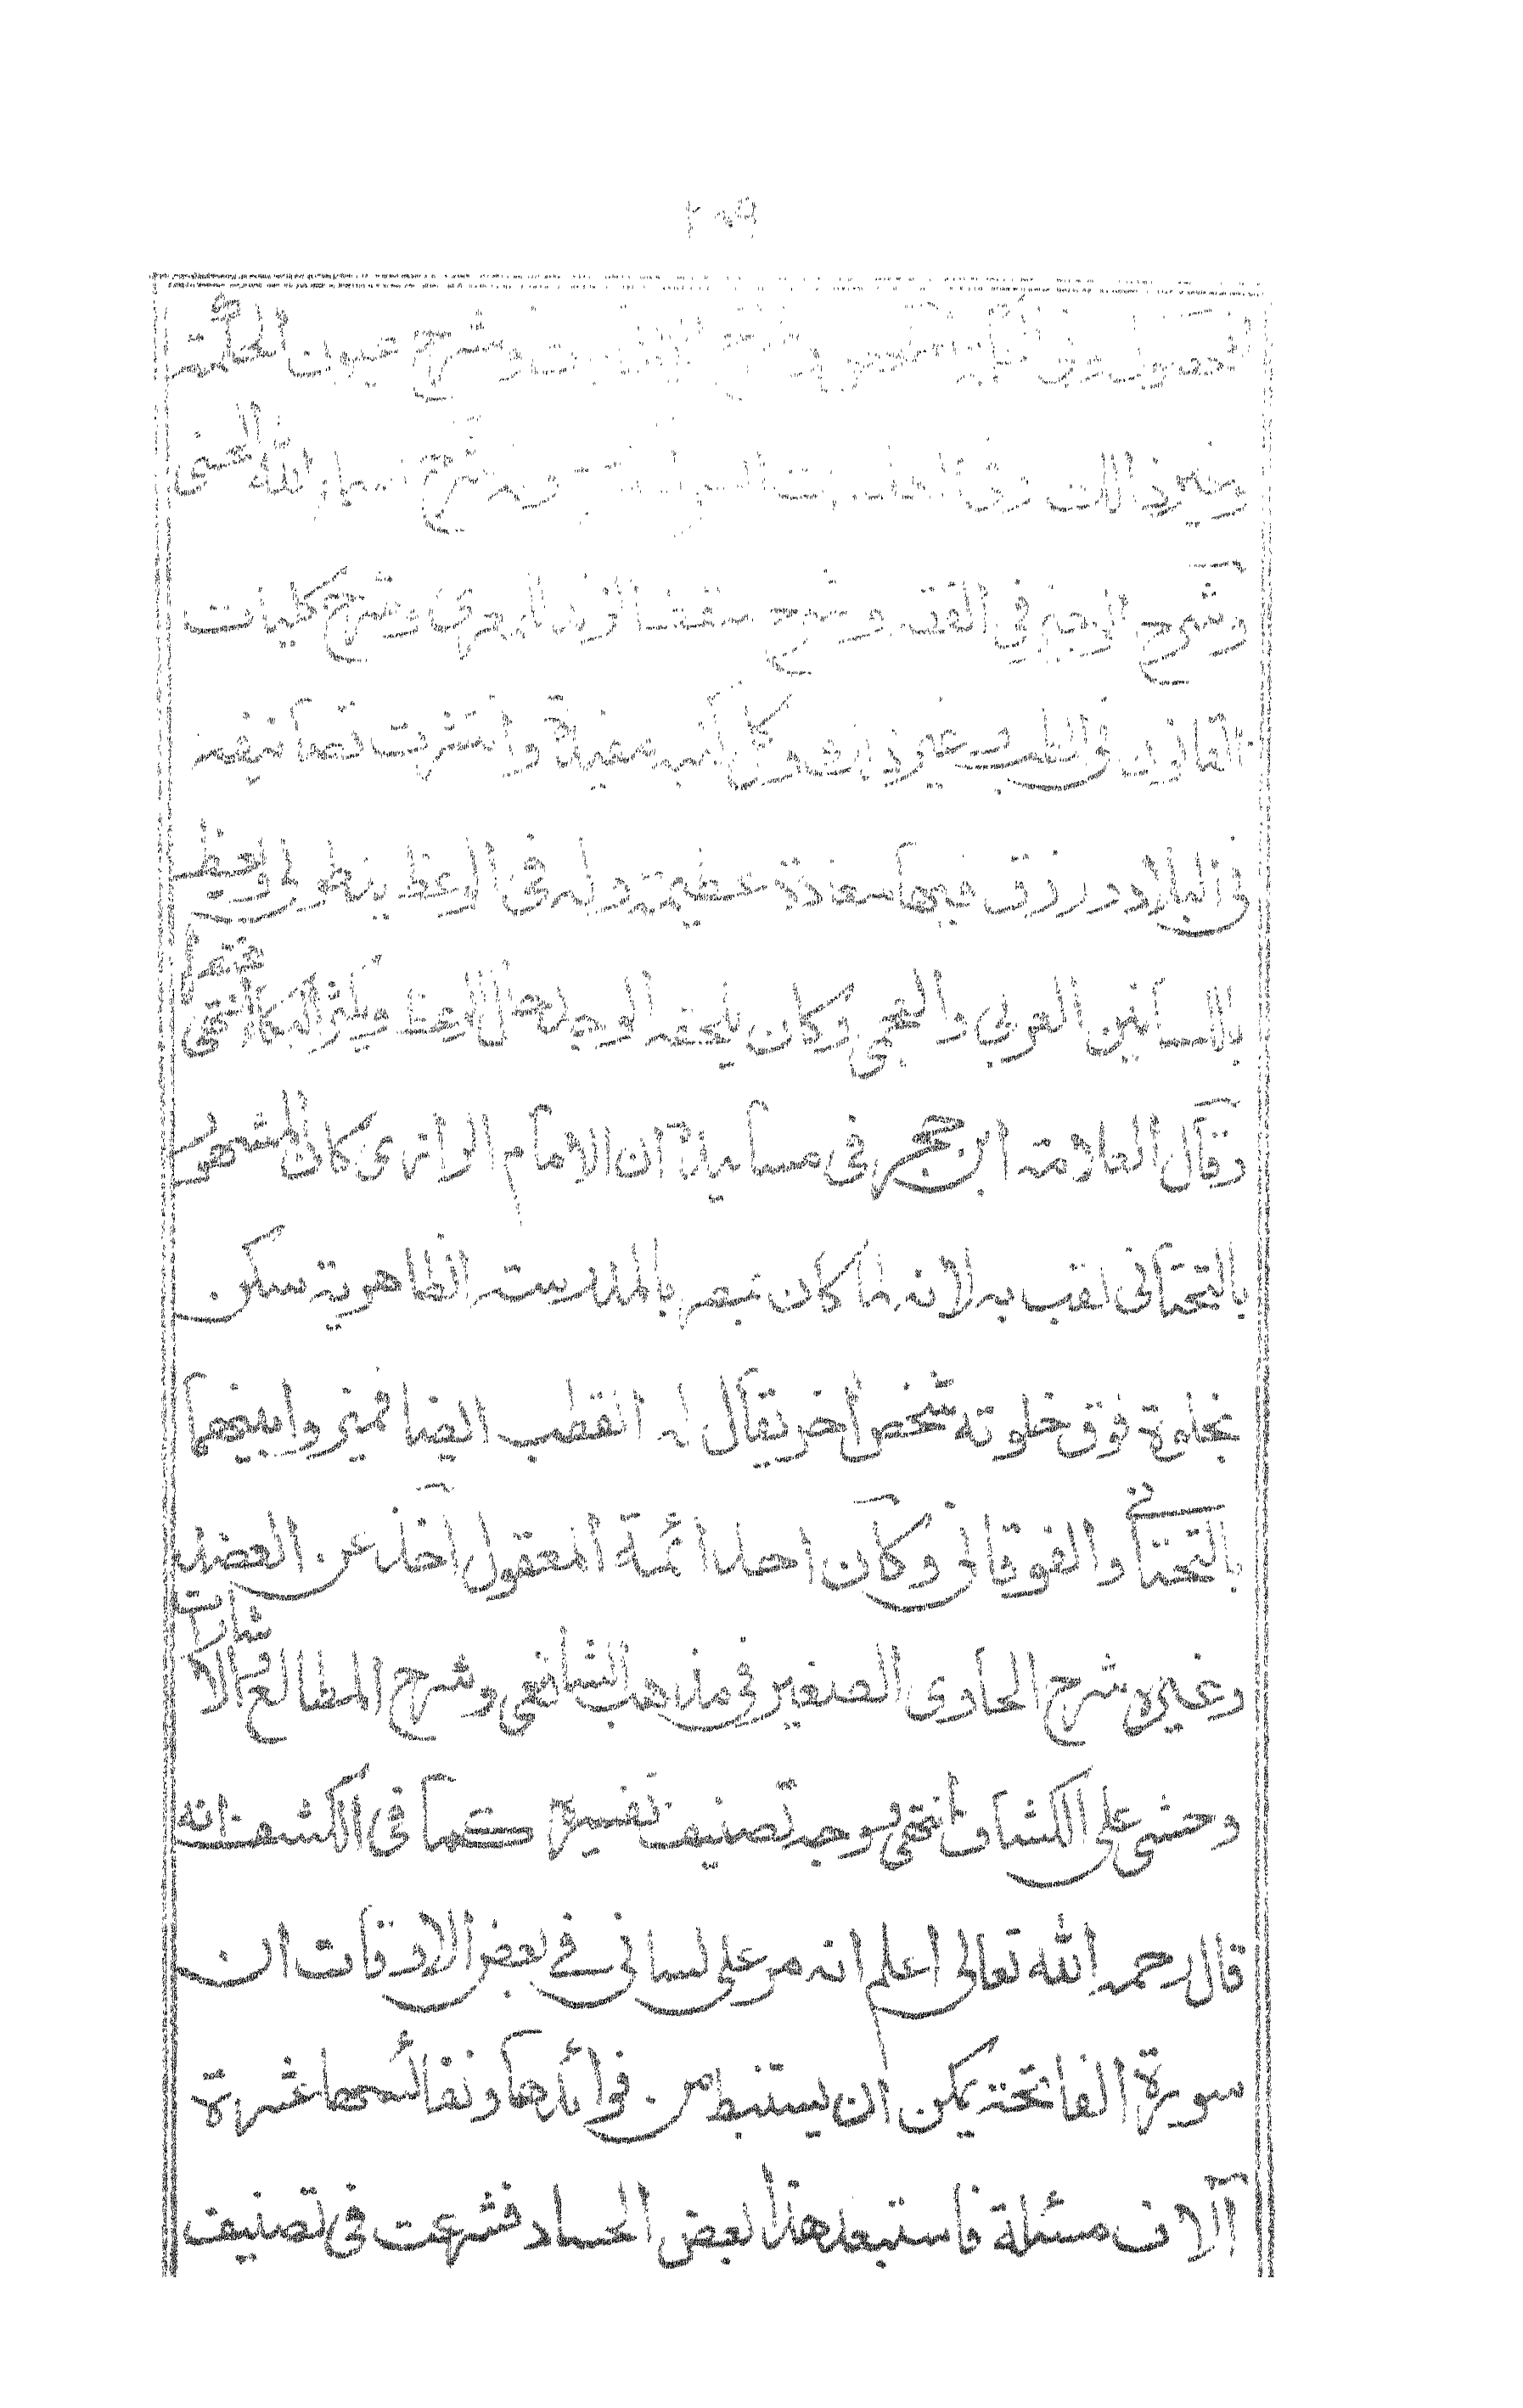 ٢٠٩
وشرح عيون الحكمة
وغير ذالك وفى وشرح اسماء الله الحسنى
وشرح الوجيز فى الفقه وشرح سقط الزند للمعرى وشرح كليات
القانون فى الطب وغير ذلك وكل كتبه مفيدة وانتشرت تصانيفه
فى البلاد ورزق فيها سعادة عظيمة وله فى الوعظ يد طولى ويعظ
باللسانين العربى والعجمى وكان يلحقه الوجد حال الوعظ ويكثر البكاء انتهى
وقال العلامة ابن حجر فى ان الامام الرازى كان المشهور
بالتحتانى لقب به لانه لما كان بمصر بالمدرسة الظاهرية سكن
بخلوة فوق خلوته شخص اخر يقال له القطب ايضا فميزوا بينهما
بالتحتانى والفوقانى وكان احد ائمة المعقول اخذ عن العضد
وغيره شرح الحاوى الصغير فى مذهب الشافعى وشرح المطالع والاشارات
وحشى على الكشاف انتهى وجد تصنيف تفسيره كما فى الكشف انه
قال رحمه الله تعالى اعلم انه مر على لسانى فى بعض الاوقات ان
سورة الفاتحة يمكن ان يستنبط من فوائدها ونفائسها عشرة
آلاف مسئلة فاستبعد هذا بعض الحساد فشرعت فى تصنيف